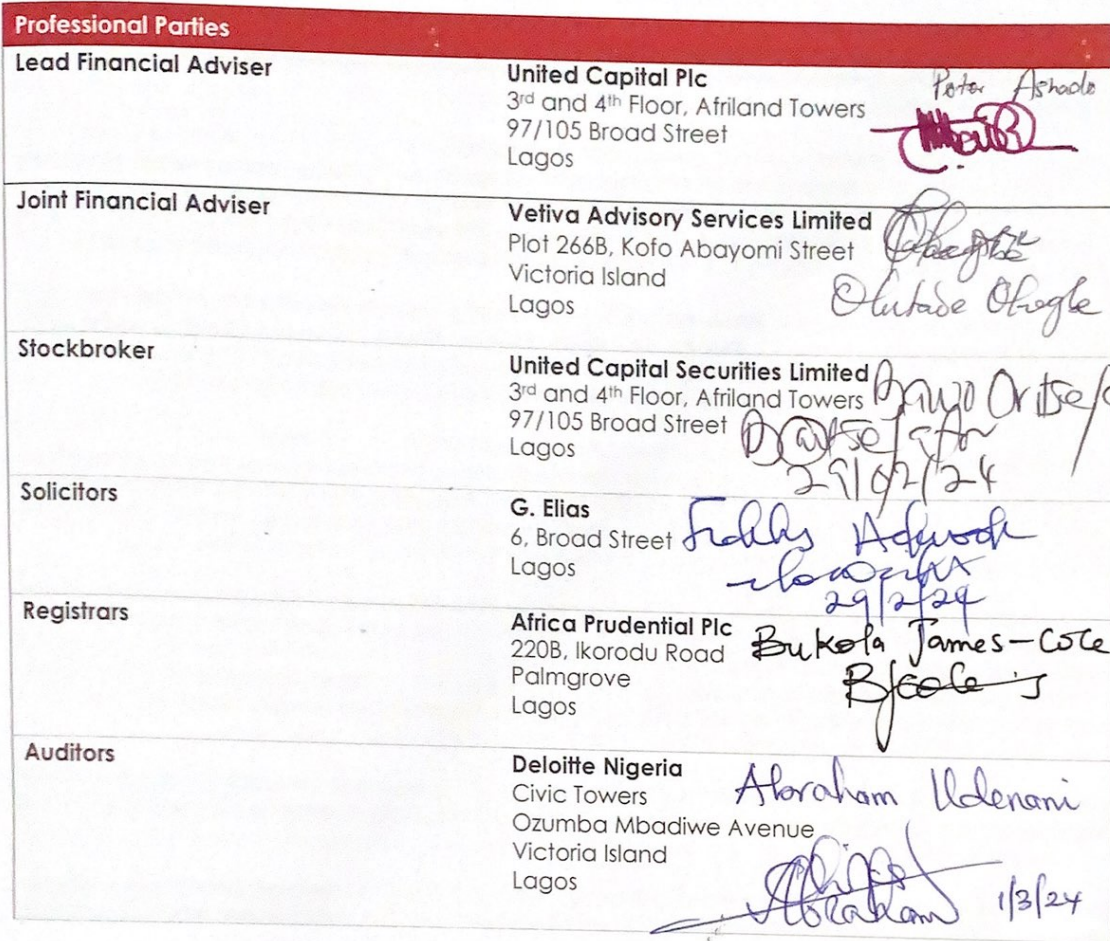 Professional Parties
Lead Financial Adviser
United Capital Plc
3rd and 4th Floor, Afriland Towers
97/105 Broad Street
Lagos
Peter Ashade
Joint Financial Adviser
Vetiva Advisory Services Limited
Plot 266B, Kofo Abayomi Street
Victoria Island
Lagos
Stockbroker
United Capital Securities Limited
3rd and 4th Floor, Afriland Towers
97/105 Broad Street
Lagos
29/02/24
Solicitors
G. Elias
6, Broad Street
Lagos
29/2/24
Registrars
Africa Prudential Plc
220B, Ikorodu Road
Palmgrove
Lagos
Bukola James-Cole
Auditors
Deloitte Nigeria
Civic Towers
Ozumba Mbadiwe Avenue
Victoria Island
Lagos
Abraham Udenani
Abraham
1/3/24